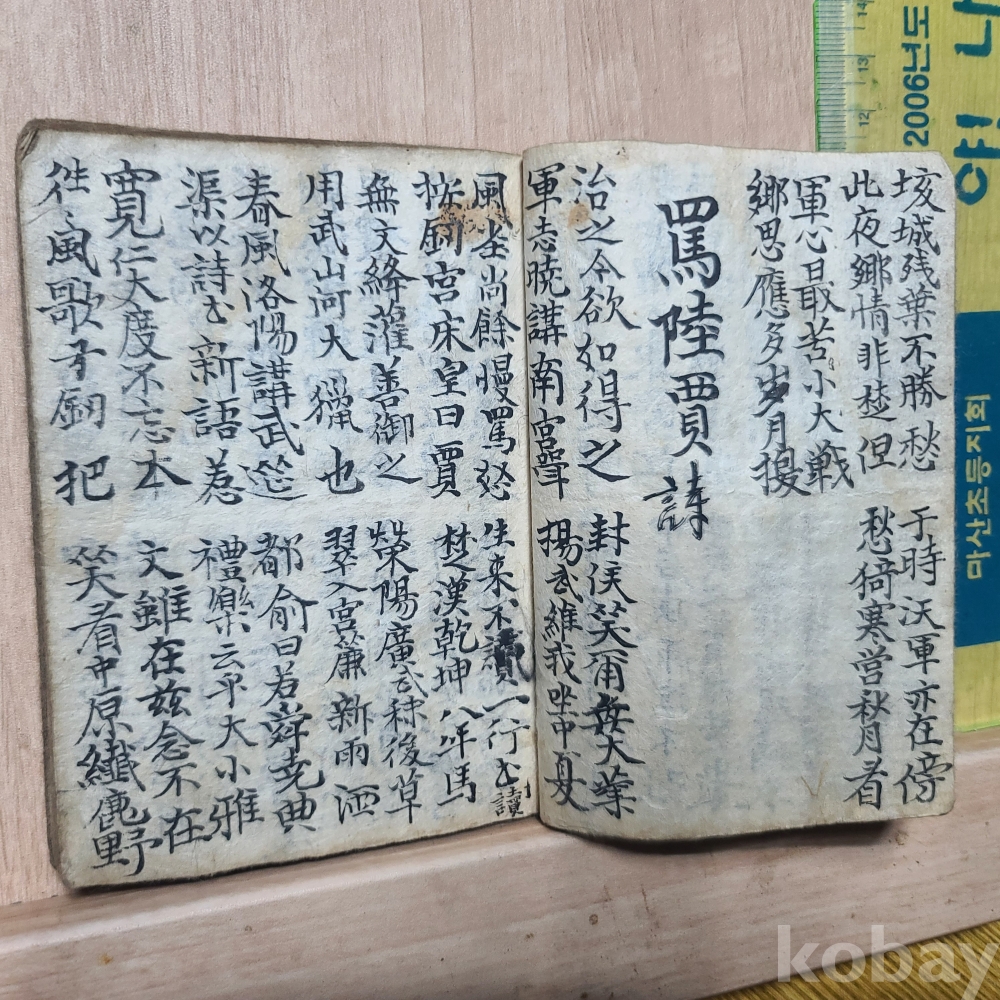 垓城残葉不勝愁 于時沃軍亦在傍
此夜鄉情非楚但 愁倚寒营秋月看
軍心日最苦小大戦
鄉思應多岁月搜
罵陸賈詩
治之今欲如得之 封侯笑甫安大業
軍志曉講南宮 揚武維我坐中夏
風坐尚餘慢罵怒 生来不讀一行書
讀
按劍宮床皇曰賈 楚漢乾坤八年馬
無文絳灌善御之 荣陽廣武秣後草
用武山河大獵也 翠入宮簾新雨洒
春風洛陽講武 都俞曰若舜尭典
渠以詩書新語惹 禮樂云乎大小雅
寛仁大度不忘本 文雖在兹念不在
徃風歌弄劒把 笑看中原纖鹿野
2006년도
마산초등지회
12 13 14
kobay